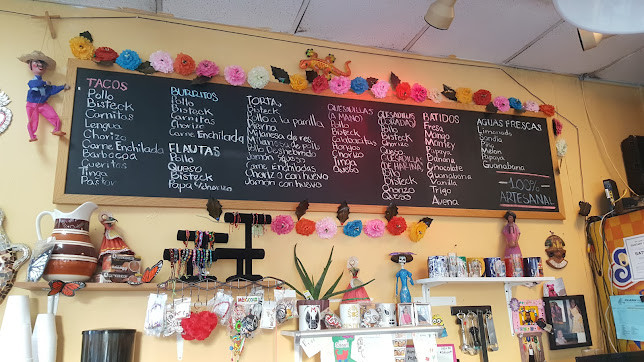 TACOS
Pollo
Bisteck
Carnitas
Lengua
Chorizo
Carne Enchilada
Barbacoa
Cueritos
Tinga
Pastor
BURRITOS
Pollo
Bisteck
Carnitas
Chorizo
Carne Enchilada
FLAUTAS
Pollo
Queso
Bisteck
Papa y chorizo
TORTAS
Bisteck
Pollo a la parrilla
Milanesa de res
Milanesa de pollo
Pollo Deshebrado
Jamon y queso
Carne Enchilada
Chorizo con huevo
Jamon con huevo
QUESADILLAS
(A MANO)
Pollo
Bisteck
Calabacitas
Hongos
Chorizo
Tinga
Queso
QUESADILLAS
Pollo
Bisteck
Chorizo
Queso
QUESADILLAS
DE HARINA
Pollo
Bisteck
Chorizo
Queso
BATIDOS
Fresa
Mango
Mamey
Papaya
Banana
Chocolate
Guanabana
Vainilla
Trigo
Avena
AGUAS FRESCAS
Limonada
Sandia
Piña
Melon
Papaya
Guanabana
100%
ARTESANAL